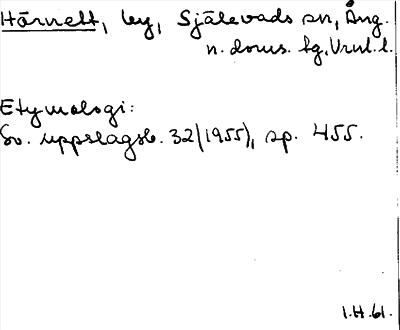 Hörnett, by, Själevads sn, Ång.
n. doms. fg, Vnl. l.
Etymologi:
Sv. uppslagsb. 32 (1955), sp. 455.
I.H.61.